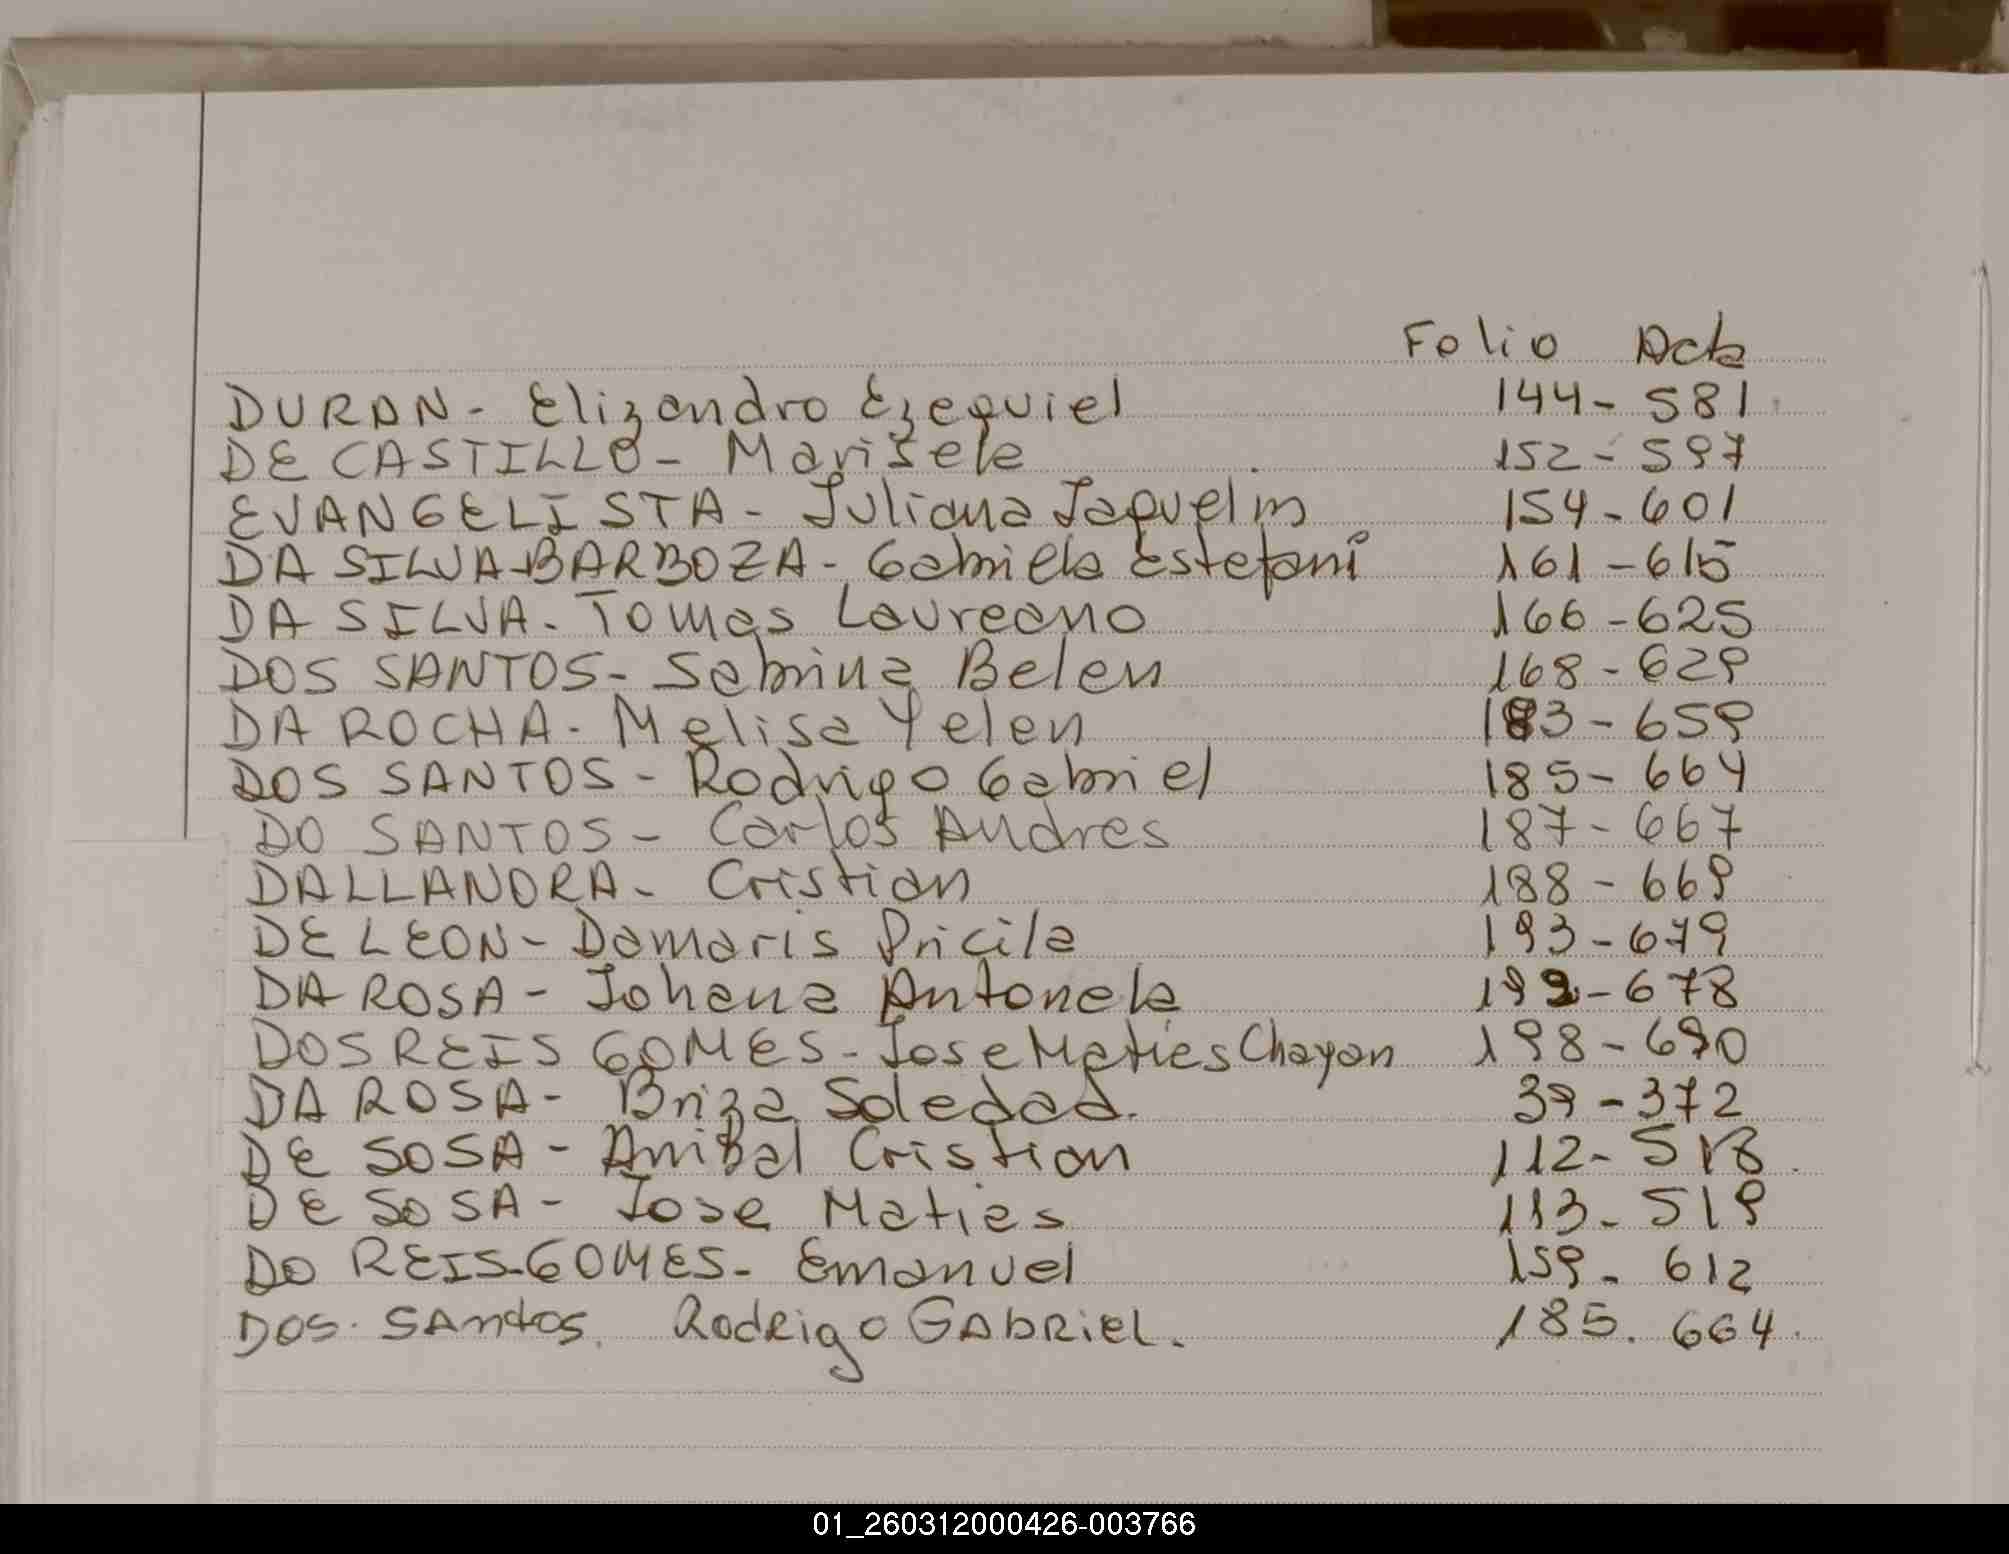 Folio Acta
DURAN - Elizandro Ezequiel 144 - 581
DE CASTILLO - Marisele 152 - 597
EVANGELISTA - Juliana Jaquelin 154 - 601
DA SILVA-BARBOZA - Gabriela Estefani 161 - 615
DA SILVA - Tomas Laureano 166 - 625
DOS SANTOS - Sabrina Belen 168 - 629
DA ROCHA - Melisa Yelen 183 - 659
DOS SANTOS - Rodrigo Gabriel 185 - 664
DO SANTOS - Carlos Andres 187 - 667
DALLANORA - Cristian 188 - 669
DE LEON - Damaris Pricila 193 - 679
DA ROSA - Johana Antonela 192 - 678
DOS REIS GOMES - Jose Matias Chayan 198 - 690
DA ROSA - Briza Soledad. 39 - 372
DE SOSA - Anibal Cristian 112 - 518.
DE SOSA - Jose Matias 113 - 519
DO REIS-GOMES - Emanuel 159 - 612
DOS. SAntos. Rodrigo GAbRiel. 185. 664.
01_260312000426-003766